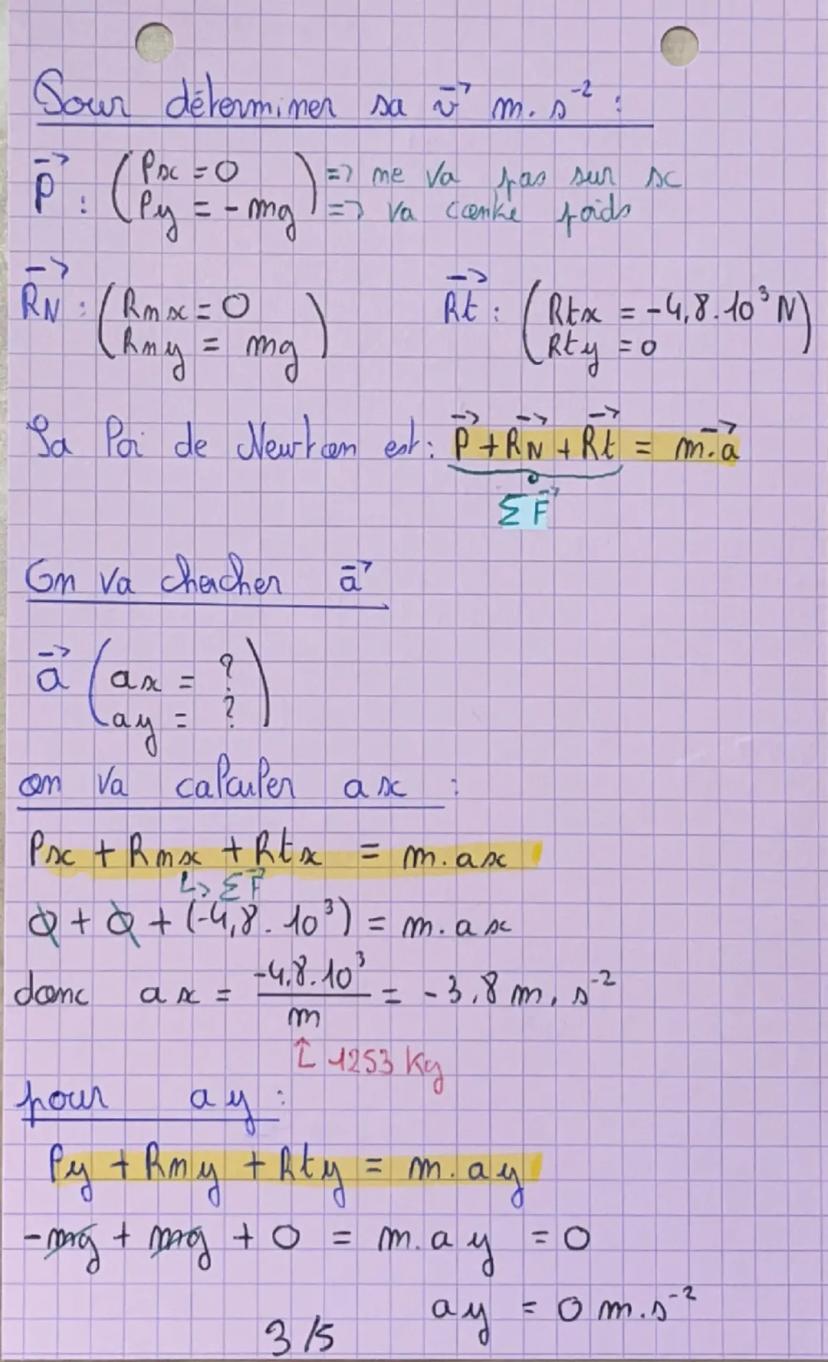 Pour déterminer sa v⃗ m.s⁻² :
P⃗ : (Px = 0 => ne va pas sur x
Py = -mg) => va contre poids
R⃗N : (Rnx = 0
Rny = mg)
R⃗t : (Rtx = -4,8.10³ N
Rty = 0)
La loi de Newton est : P⃗ + R⃗N + R⃗t = m.a⃗
ΣF⃗
On va chercher a⃗
a⃗ (ax = ?
ay = ?)
on va calculer ax :
Px + Rnx + Rtx = m.ax
↳ ΣF⃗
0 + 0 + (-4,8.10³) = m.ax
donc ax = -4,8.10³ / m = -3,8 m.s⁻²
↑ 1253 Kg
pour ay :
Py + Rny + Rty = m.ay
-mg + mg + 0 = m.ay = 0
ay = 0 m.s⁻²
3/5